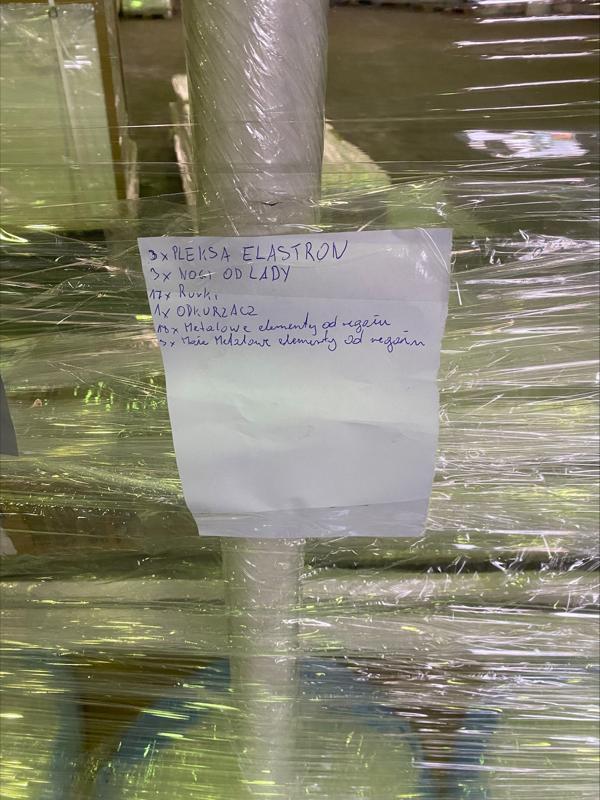 3x PLEKSA ELASTRON
3x NOGI OD LADY
17x Rurki
1x ODKURZACZ
18x Metalowe elementy od regału
9x Małe Metalowe elementy od regału